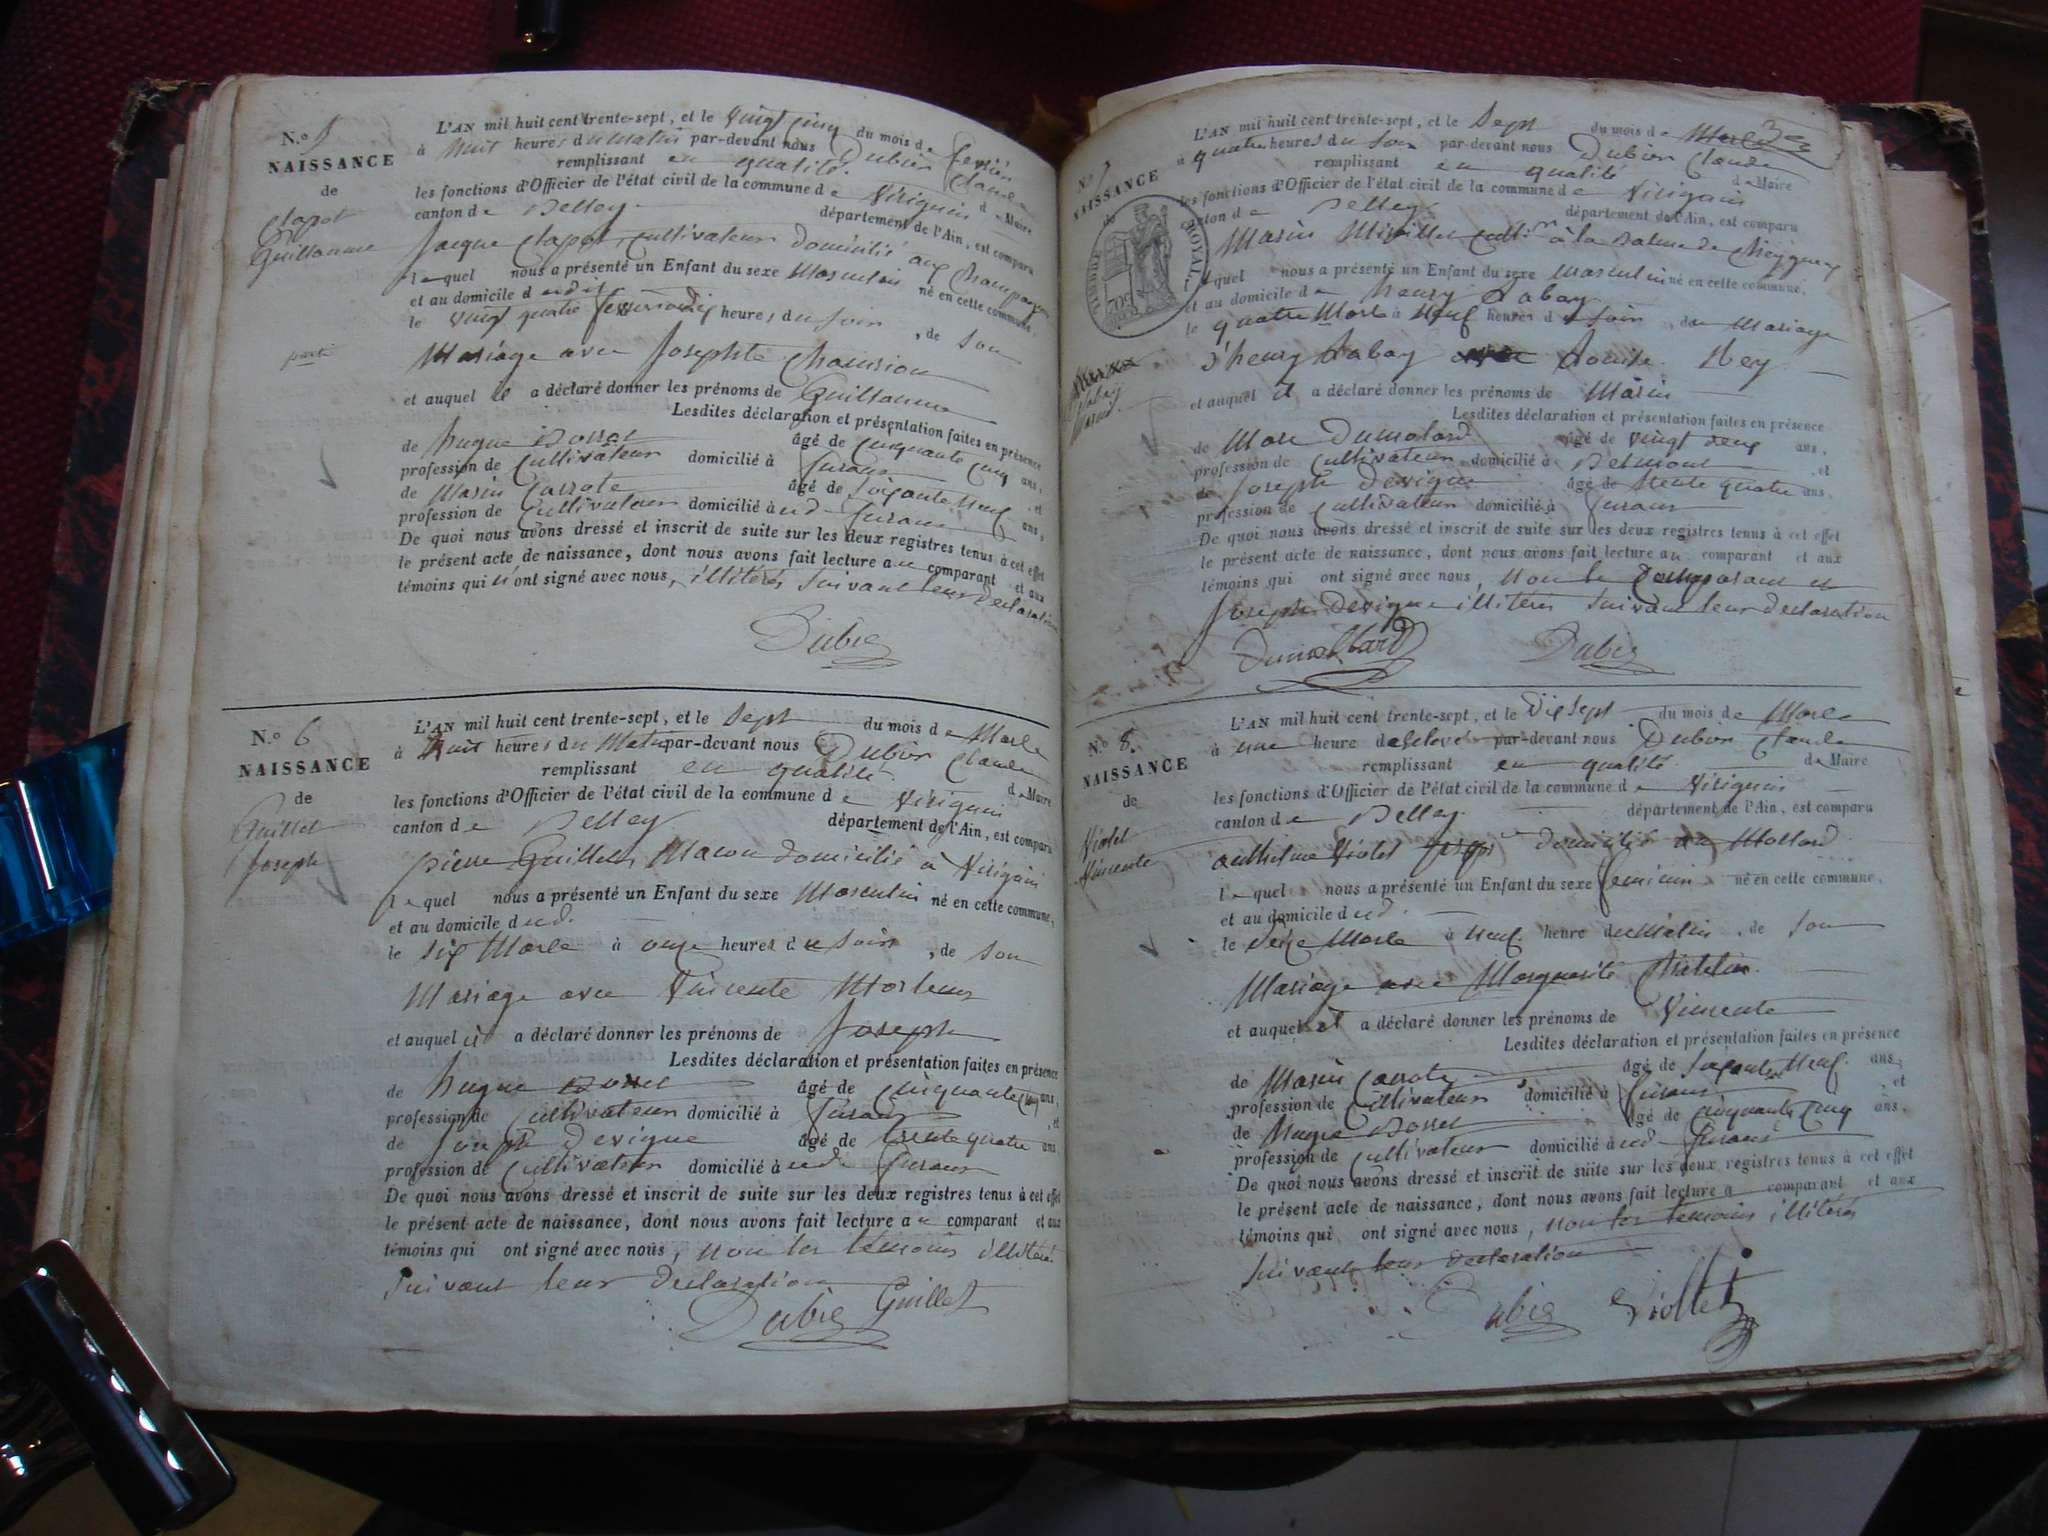 N.º 5
NAISSANCE
de
Clapot
Guillaume
L'AN mil huit cent trente-sept, et le vingt cinq du mois de fevrier
à huit heures du matin par-devant nous Dubier Claude
remplissant en qualité de Maire
les fonctions d'Officier de l'état civil de la commune de Virignin
canton de Belley département de l'Ain, est comparu
Jacque Clapot, cultivateur domicilié aux Champagnes
lequel nous a présenté un Enfant du sexe Masculin né en cette commune,
et au domicile
le vingt quatre heures du soir, de son
Mariage avec Josephte
et auquel il a déclaré donner les prénoms de Guillaume
Lesdites déclaration et présentation faites en présence
de hugue Bosset âgé de cinquante cinq ans,
profession de Cultivateur domicilié à Surans et
de Marin Carrote âgé de Soixante Neuf ans,
profession de Cultivateur domicilié à ud. Surans
De quoi nous avons dressé et inscrit de suite sur les deux registres tenus à cet effet
le présent acte de naissance, dont nous avons fait lecture au comparant et aux
témoins qui n'ont signé avec nous, illitérés suivant leur declaration
Dubie
N.º 6
NAISSANCE
de
Guillet
Joseph
L'AN mil huit cent trente-sept, et le Sept du mois de Marse
à huit heures du Matin par-devant nous Dubier Claude
remplissant en qualité de Maire
les fonctions d'Officier de l'état civil de la commune de Virignin
canton de Belley département de l'Ain, est comparu
pierre Guillet Macon domicilié à Virignin
lequel nous a présenté un Enfant du sexe Masculin né en cette commune,
et au domicile dud.
le six Marse à onze heures du soir, de son
Mariage avec Vincente
et auquel il a déclaré donner les prénoms de Joseph
Lesdites déclaration et présentation faites en présence
de hugue Bosset âgé de cinquante cinq ans,
profession de Cultivateur domicilié à Surans et
de Joseph Devigne âgé de trente quatre ans
profession de Cultivateur domicilié à ud. Surans
De quoi nous avons dressé et inscrit de suite sur les deux registres tenus à cet effet
le présent acte de naissance, dont nous avons fait lecture au comparant et aux
témoins qui ont signé avec nous, non les témoins illitérés
suivant leur declaration
Dubie Guillet
N.º 7
NAISSANCE
de
TIMBRE ROYAL
Labay
Marin
L'AN mil huit cent trente-sept, et le Sept du mois de Marse
à quatre heures du soir par-devant nous Dubier Claude
remplissant en qualité de Maire
les fonctions d'Officier de l'état civil de la commune de Virignin
canton de Belley département de l'Ain, est comparu
Marin cultr à la Balme de
lequel nous a présenté un Enfant du sexe masculin né en cette commune,
et au domicile de henry Labay
le quatre Marse à Neuf heures du soir, de Mariage
d'henry Labay Louise Rey
et auquel il a déclaré donner les prénoms de Marin
Lesdites déclaration et présentation faites en présence
de Marc Dumolard âgé de vingt neuf ans,
profession de cultivateur domicilié à Belmont et
de Joseph Devigne âgé de trente quatre ans,
profession de Cultivateur domicilié à Surans
De quoi nous avons dressé et inscrit de suite sur les deux registres tenus à cet effet
le présent acte de naissance, dont nous avons fait lecture au comparant et aux
témoins qui ont signé avec nous, non le comparant et
Joseph Devigne illitérés suivant leur declaration
Dumollard Dubie
N.º 8.
NAISSANCE
de
Violet
Vincente
L'AN mil huit cent trente-sept, et le Dix Sept du mois de Marse
à une heure par-devant nous Dubier Claude
remplissant en qualité de Maire
les fonctions d'Officier de l'état civil de la commune de Virignin
canton de Belley département de l'Ain, est comparu
anthelme Violet domicilié au Mollard
lequel nous a présenté un Enfant du sexe feminin né en cette commune,
et au domicile dud.
le Seize Marse à Neuf heure du Matin, de son
Mariage avec Marguerite
et auquel il a déclaré donner les prénoms de Vincente
Lesdites déclaration et présentation faites en présence
de Marin Carrote âgé de Soixante Neuf ans,
profession de Cultivateur domicilié à Surans et
de hugue Bosset âgé de cinquante cinq ans,
profession de Cultivateur domicilié à ud. Surans
De quoi nous avons dressé et inscrit de suite sur les deux registres tenus à cet effet
le présent acte de naissance, dont nous avons fait lecture a comparant et aux
témoins qui ont signé avec nous, non les temoins illitérés
suivant leur declaration
Dubie Viollet